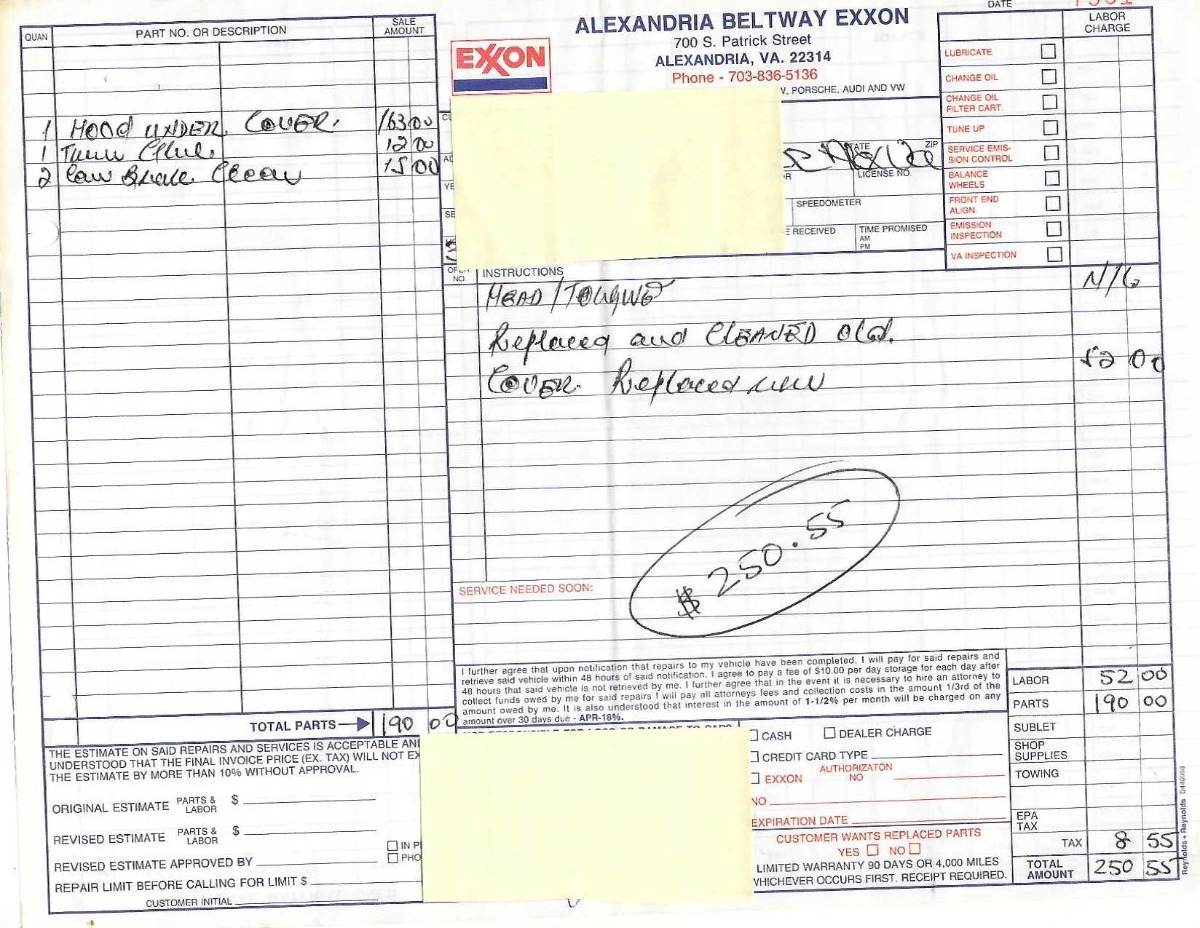 DATE 7501
QUAN PART NO. OR DESCRIPTION SALE AMOUNT
1 HOOD UNDER COVER. 163 00
1 12 00
2 Can Brake Clean 15 00
TOTAL PARTS 190 00
THE ESTIMATE ON SAID REPAIRS AND SERVICES IS ACCEPTABLE AN
UNDERSTOOD THAT THE FINAL INVOICE PRICE (EX. TAX) WILL NOT EX
THE ESTIMATE BY MORE THAN 10% WITHOUT APPROVAL.
ORIGINAL ESTIMATE PARTS & LABOR $
REVISED ESTIMATE PARTS & LABOR $
IN P
REVISED ESTIMATE APPROVED BY
PHO
REPAIR LIMIT BEFORE CALLING FOR LIMIT $
CUSTOMER INITIAL
EXXON
ALEXANDRIA BELTWAY EXXON
700 S. Patrick Street
ALEXANDRIA, VA. 22314
Phone - 703-836-5136
PORSCHE, AUDI AND VW
STATE ZIP
LICENSE NO.
SPEEDOMETER
E RECEIVED TIME PROMISED
AM
PM
LABOR CHARGE
LUBRICATE
CHANGE OIL
CHANGE OIL
FILTER CART.
TUNE UP
SERVICE EMIS-
SION CONTROL
BALANCE
WHEELS
FRONT END
ALIGN
EMISSION
INSPECTION
VA INSPECTION
NO. INSTRUCTIONS
N/C
Replaced and CLEANED Old.
52 00
COVER. Replaced new
$ 250.55
SERVICE NEEDED SOON:
I further agree that upon notification that repairs to my vehicle have been completed, I will pay for said repairs and
retrieve said vehicle within 48 hours of said notification. I agree to pay a fee of $10.00 per day storage for each day after
48 hours that said vehicle is not retrieved by me. I further agree that in the event it is necessary to hire an attorney to
collect funds owed by me for said repairs I will pay all attorneys fees and collection costs in the amount 1/3rd of the
amount owed by me. It is also understood that interest in the amount of 1-1/2% per month will be charged on any
amount over 30 days due - APR-18%.
CASH DEALER CHARGE
CREDIT CARD TYPE
EXXON AUTHORIZATON NO
NO
EXPIRATION DATE
CUSTOMER WANTS REPLACED PARTS
YES NO
LIMITED WARRANTY 90 DAYS OR 4,000 MILES
WHICHEVER OCCURS FIRST. RECEIPT REQUIRED.
LABOR 52 00
PARTS 190 00
SUBLET
SHOP SUPPLIES
TOWING
EPA TAX
TAX 8 55
TOTAL AMOUNT 250 55
Reynolds + Reynolds